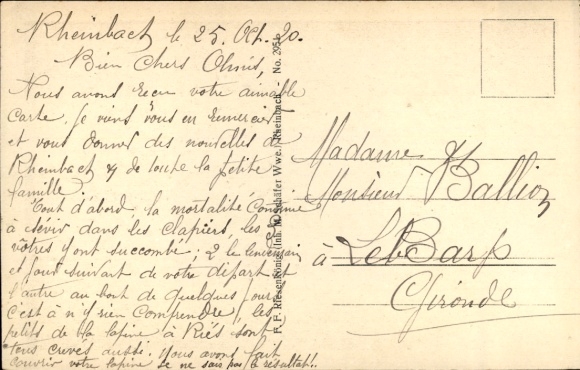 Rheinbach le 25. Oct. 20.
Bien Chers Amis,
Nous avons reçu votre aimable
carte. Je viens vous en remercier
et vous donner des nouvelles de
Rheinbach & de toute la petite
famille.
Tout d'abord, la mortalité continue
à sévir dans les clapiers, les
vôtres y ont succombé; 2 le lendemain
et jour suivant de votre départ et
l'autre au bout de quelques jours
c'est à n'y rien comprendre, les
petits de la lapine à Riès sont
tous crevés aussi. Nous avons fait
couvrir votre lapine je ne sais pas le résultat!..
F. F. Riesenkönig (Inh. M. Schäfer Wwe.), Rheinbach - No. 295
Madame &
Monsieur Ballion
à Le Barp
Gironde